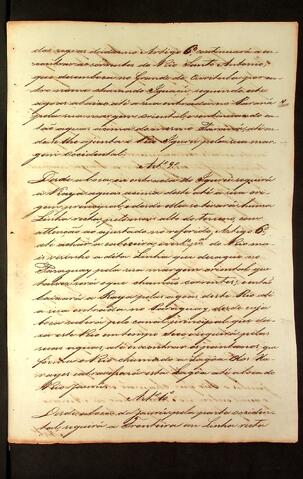 das regras dadas no Artigo 6º continuará a en-
contrar as vertentes do Rio Santo Antonio,
que desemboca no Grande de Curitiba, por ou-
tro nome chamado Iguaçú, seguindo este
aguas abaixo até a sua entrada no Paraná
pela sua margem oriental, continuando en-
tão aguas acima do mesmo Paraná até on-
de se lhe ajunta o Rio Igurey pela sua mar-
gem Occidental.
Artº 9º
Desde a boca, ou entrada do Igurey seguirá
a Raya aguas acima deste até a sua ori-
gem principal, e desde ella se tirará huma
Linha recta pelo mais alto do terreno, com
attenção ao ajustado no referido Artigo 6º
até a cabeceira, e vertente pal do Rio ma-
is visinho á dita Linha que desague no
Paraguay pela sua margem oriental, que
talvez será o que chamão Corrientes; e então
baixará a Raya pelas aguas deste Rio até
a sua entrada no Paraguay, desde cuja
boca subirá pelo canal principal, que dei-
xa este Rio em tempo seco, e seguirá pelas
suas aguas até encontrar os pantanos, que
forma o Rio chamado a Lagôa dos Xa-
rayes, e atravessará esta Lagôa até a boca do
Rio Jaurú.
Artº 10º
Desde a boca do Jaurú pela parte occiden-
tal, seguirá a Fronteira em linha recta